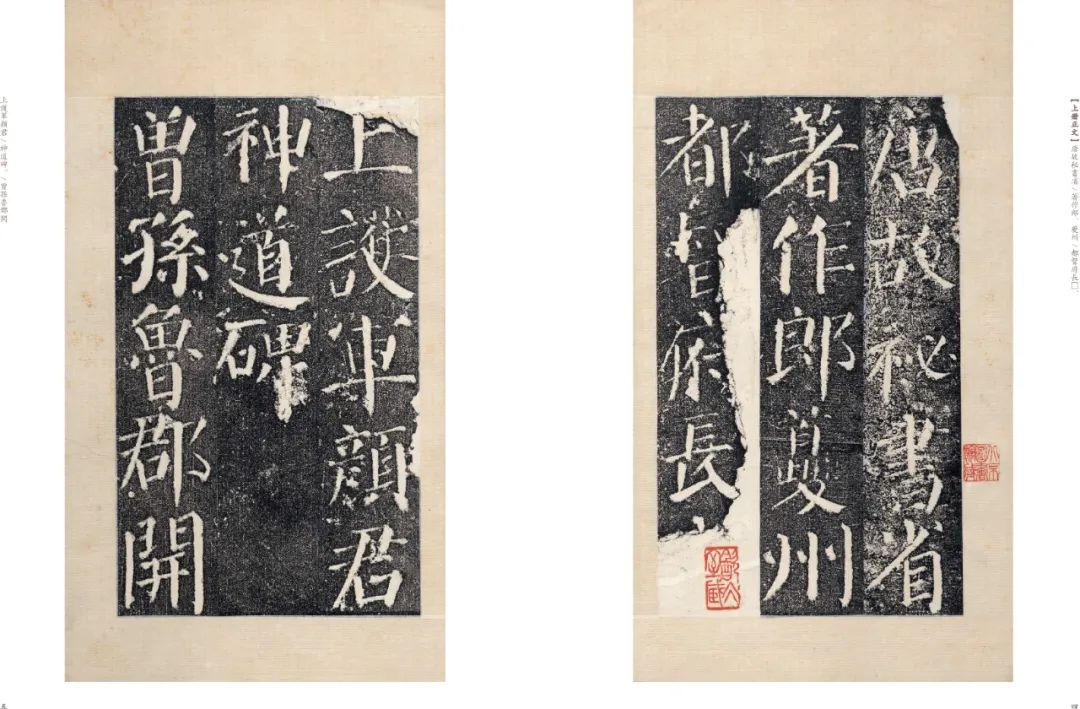 【上册正文】唐故秘書省/著作郎、夔州/都督府長□、
唐故祕書省
著作郎夔州
都督府長
上護軍顏君
神道碑
曾孫魯郡開
上護軍顏君/神道碑。/曾孫魯郡開